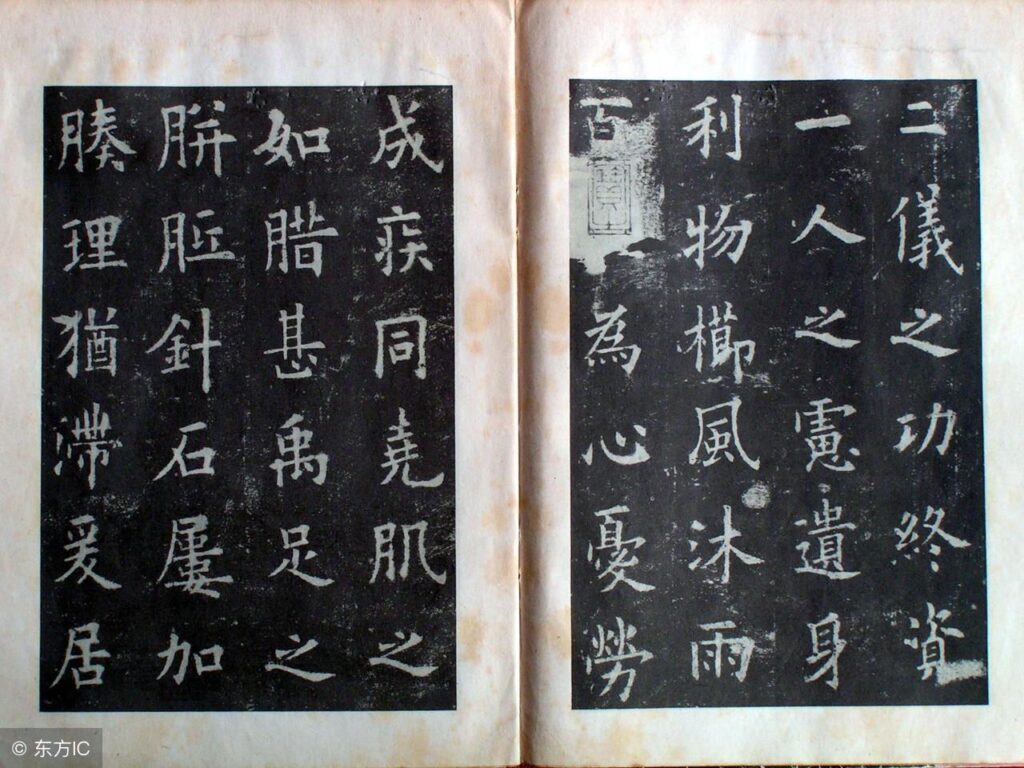 二儀之功終資
一人之慮遺身
利物櫛風沐雨
百 為心憂勞
成疾同堯肌之
如腊甚禹足之
胼胝針石屢加
腠理猶滯爰居
© 东方IC